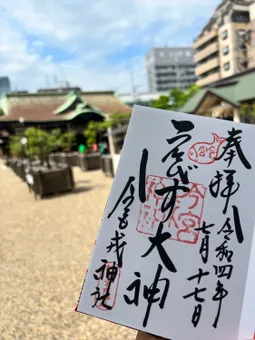 奉拝
令和四年
七月十七日
えびす大神
今宮戎神社